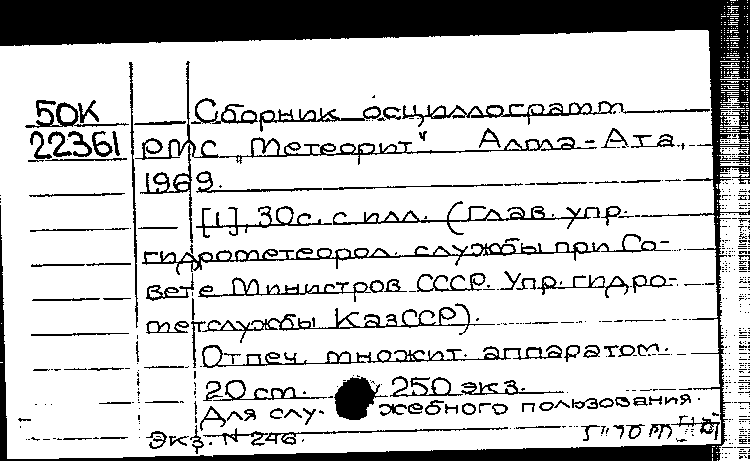 50К
22361
Сборник осциллограмм
РМС „Метеорит“ Алма-Ата,
1969.
[1], 30с. с илл. (Глав. упр.
гидрометеорол. службы при Со-
вете Министров СССР. Упр. гидро-
метслужбы КазССР).
Отпеч. множит. аппаратом.
20 см. 250 экз.
Для слу- жебного пользования.
Экз. N 246.